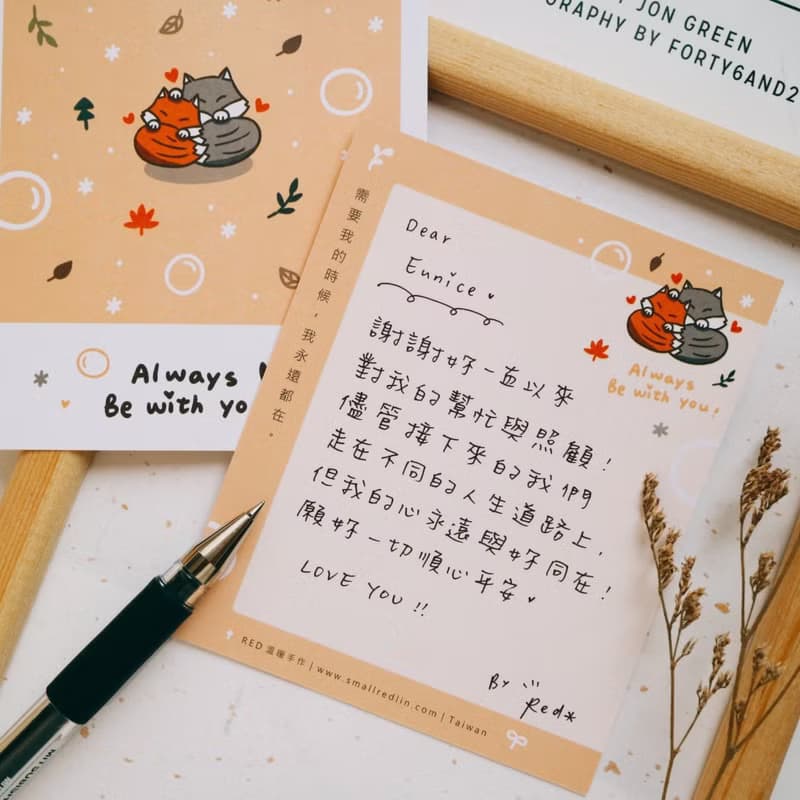 JON GREEN
GRAPHY BY FORTY6AND2
Always
Be with yo
需要我的時候，我永遠都在。
Dear
Eunice
謝謝妳一直以來
對我的幫忙與照顧！
儘管接下來的我們
走在不同的人生道路上，
但我的心永遠與妳同在！
願妳一切順心平安。
LOVE YOU!!
By Red
Always
Be with you!
RED 溫暖手作 | www.smallredlin.com | Taiwan